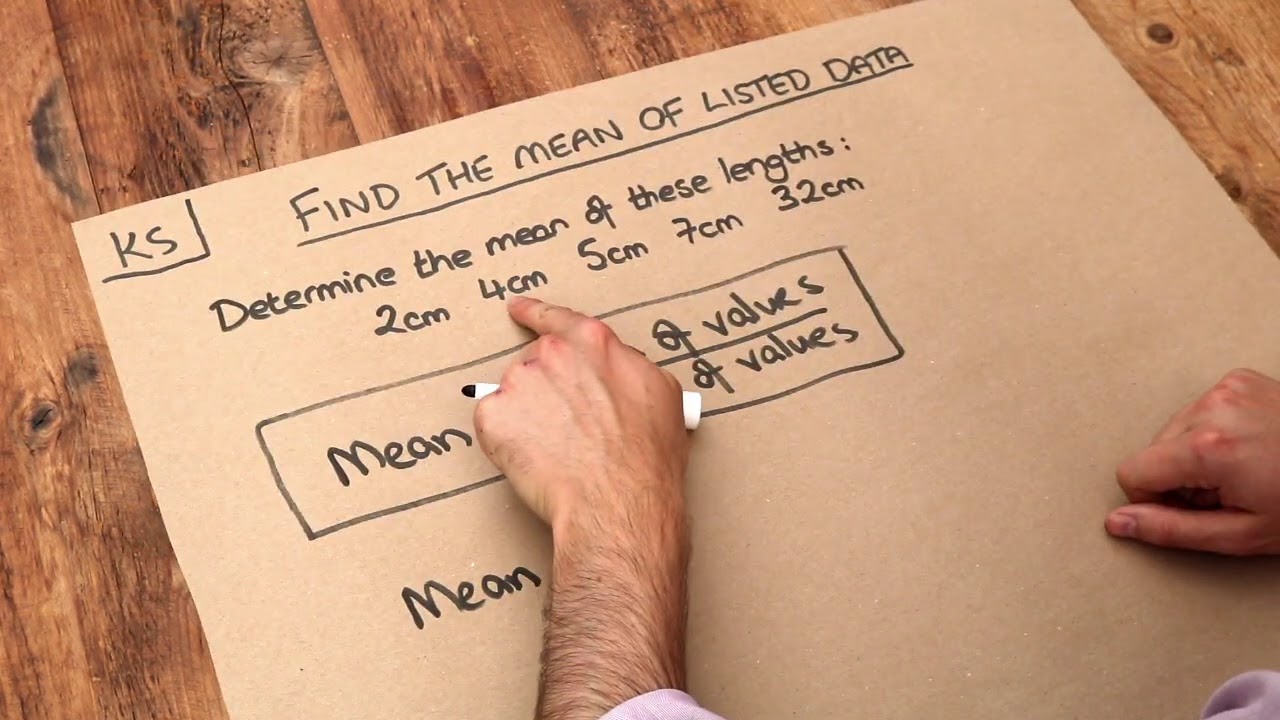 KS
FIND THE MEAN OF LISTED DATA
Determine the mean of these lengths:
2cm 4cm 5cm 7cm 32cm
Mean
of values
of values
Mean